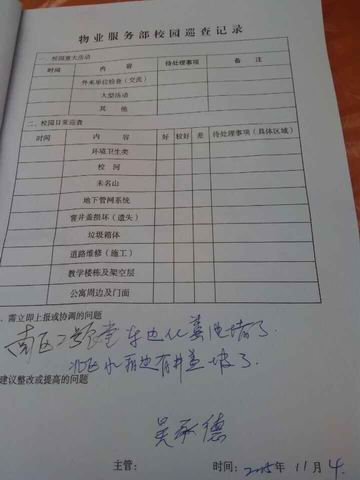 物业服务部校园巡查记录
一.校园重大活动
时间 内 容 待处理事项 备 注
外来单位检查（交流）
大型活动
其 他
二.校园日常巡查
时间 内 容 好 校好 差 待处理事项（具体区域）
环境卫生类
校 河
未名山
地下管网系统
窨井盖损坏（遗失）
垃圾箱体
道路维修（施工）
教学楼栋及架空层
公寓周边及门面
.需立即上报或协调的问题
南区2号食堂东边化粪池堵了
北区水 边有井盖坡了.
建议整改或提高的问题
吴承德
主管： 时间：2015年 11月 4.